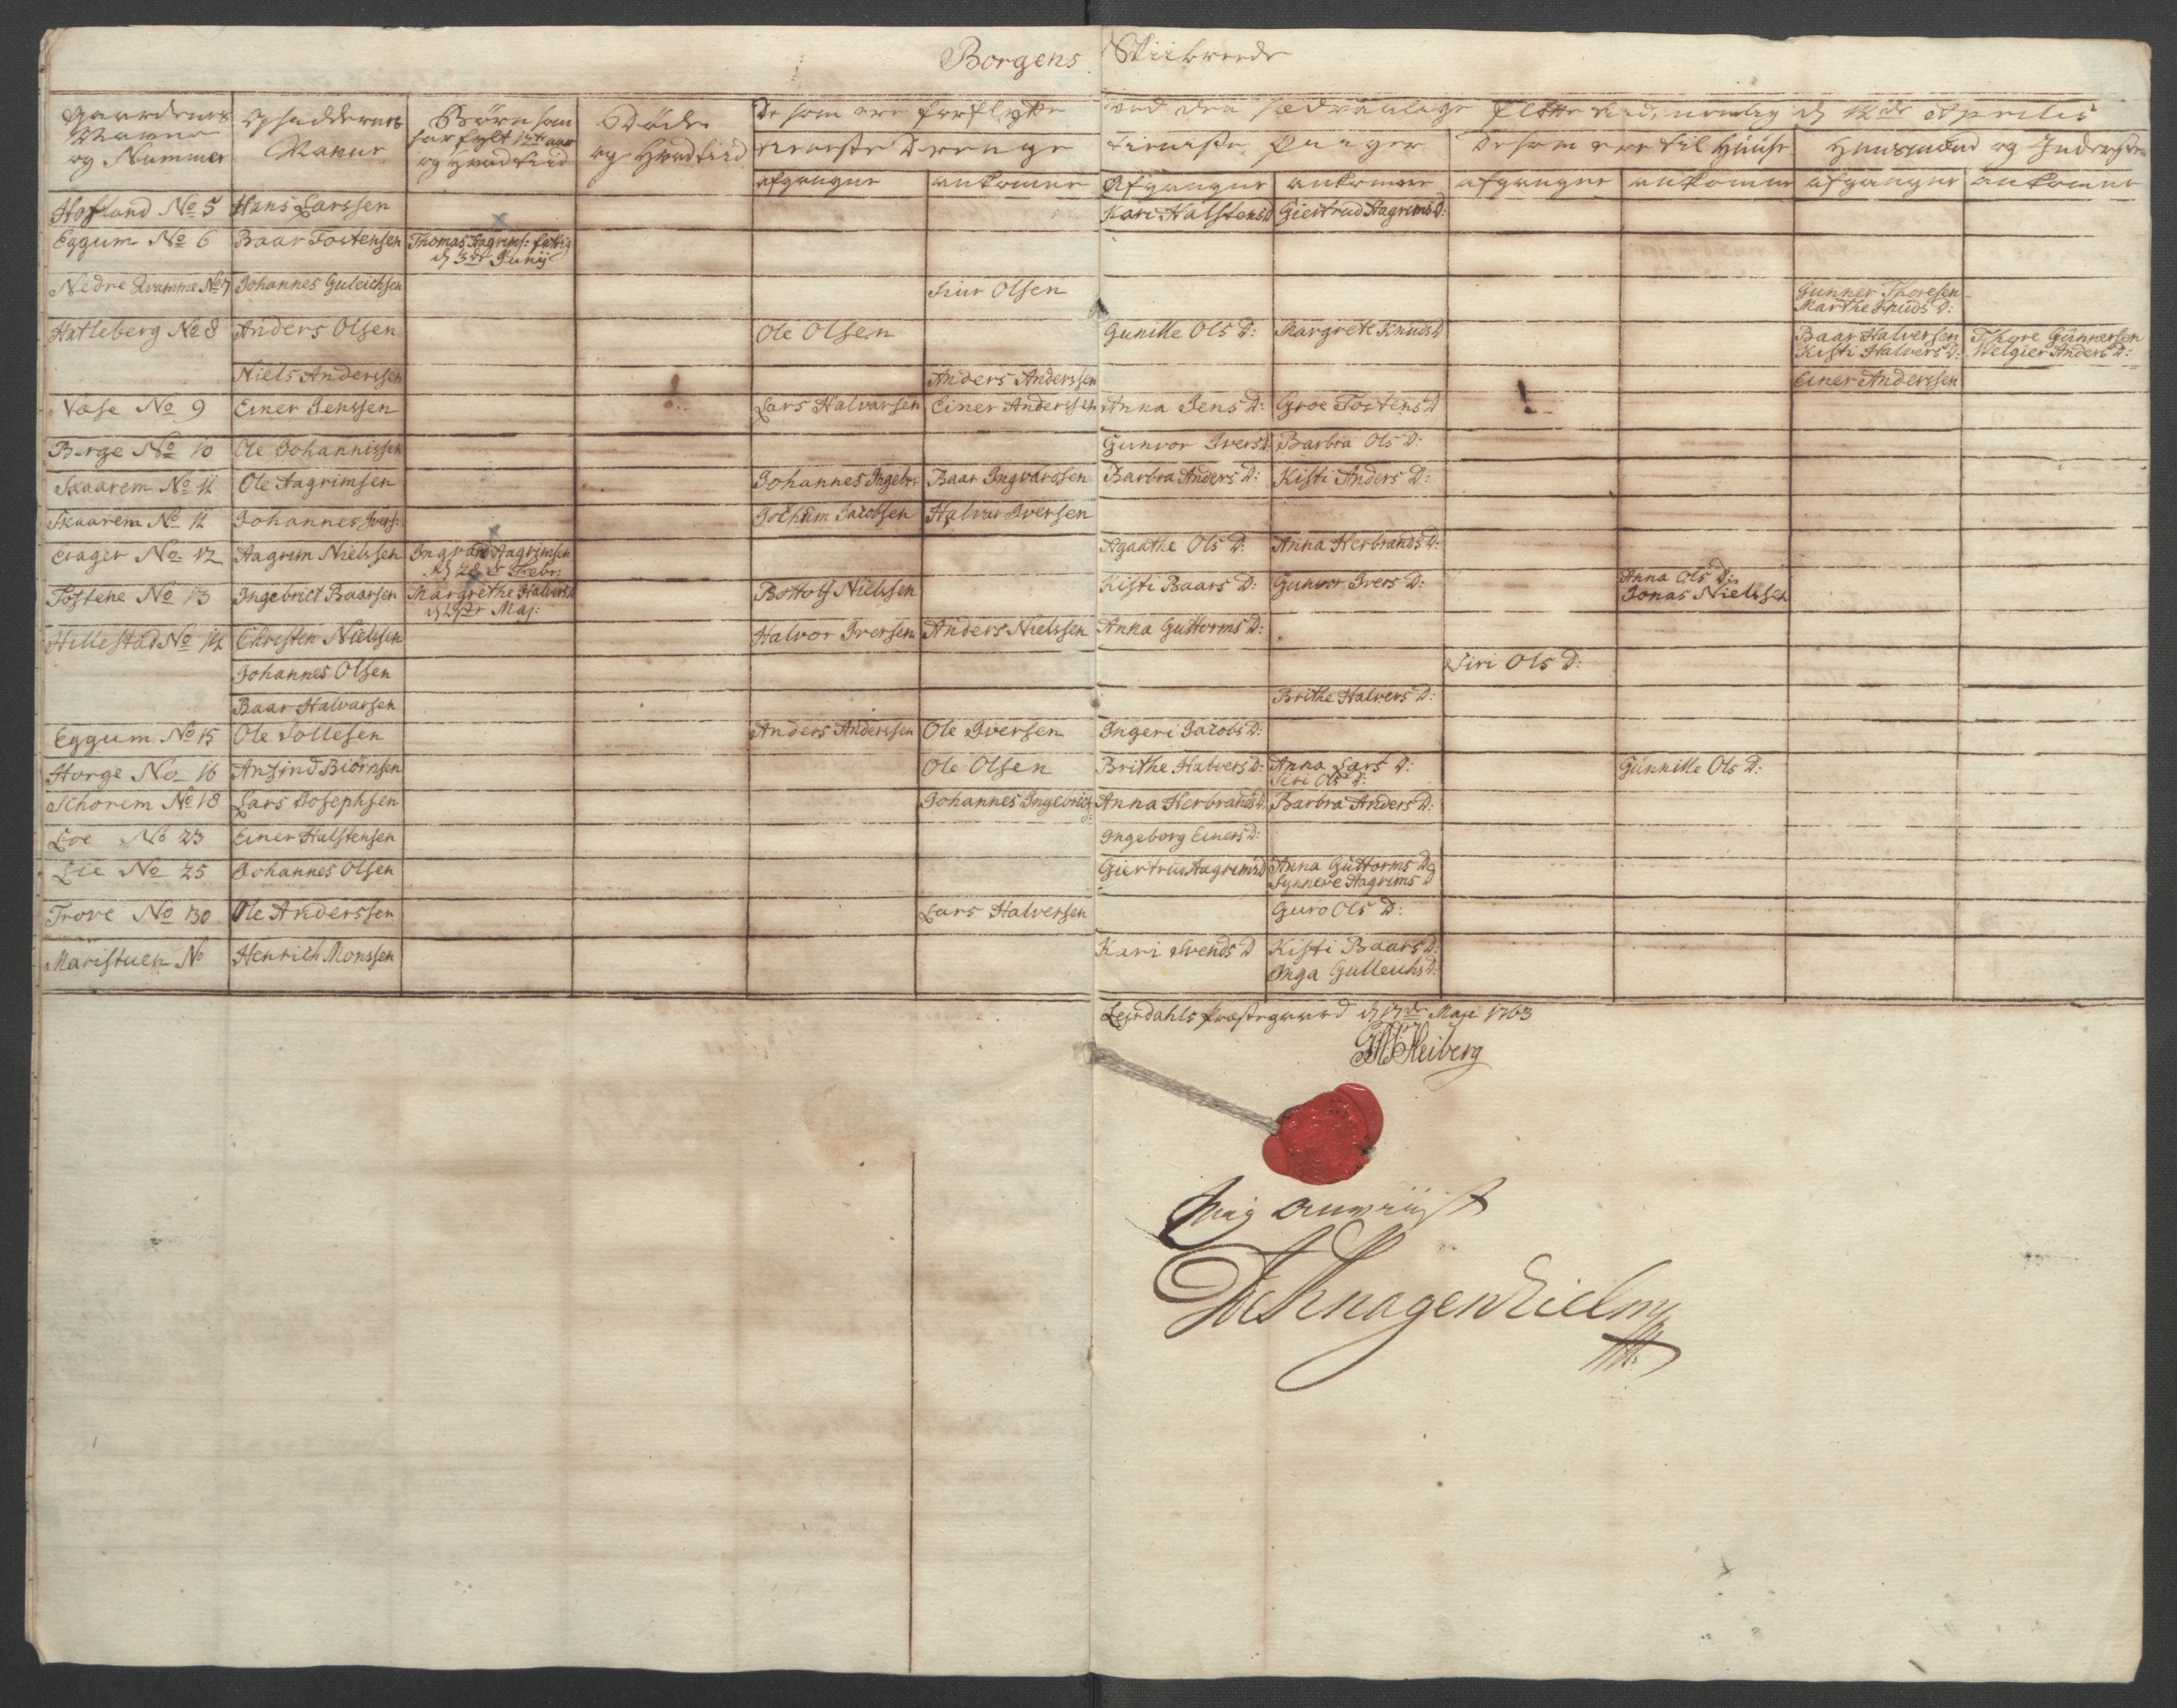 Borgens Skibreede
Gaardenes Navne og Nummer
Opsiddernes Navne
Børn som har fylt 12te aar og hvad tiid
Døde og hvad tiid
De som ere forfløtte ved den sædvanlige flötte tid, nemlig d 12de Aprilis
tieneste Drenge
tieniste Piiger
De som ere til Huuse
Huusmænd og Inderster
afgangne ankomne Afgangne ankomne afgangne ankomne afgangne ankomne
Hofland No 5 Hans Larssen Kari Halstens D Giertrud Aagrims D:
Eggum No 6 Baar Tostensen Thomas Aagrims:
d 3de Junij
Nedre Qvamme No 7 Johannes Guleichsen Siur Olsen Gunner Thoresen
Marthe Knuds D:
Hatleberg No 8 Anders Olsen Ole Olsen Gunille Ols D: Margrete Knuds D Baar Halversen Thore Gunnersen
Kisti Halvers D: Welgier Anders D:
Niels Anderssen Anders Anderssen Einer Anderssen
Næse No 9 Einer Jenssen Lars Halvarsen Einer Anderssen Anna Jens D: Groe Tostens D
Berge No 10 Ole Johannissen Gunvor Ivers D: Barbra Ols D:
Skaarem No 11 Ole Aagrimsen Johannes Ingebr: Baar Ingvarssen Barbra Anders D: Kisti Anders D:
Skaarem No 11 Johannes Ivers: Jochum Jacobsen Halvar Iversen
Erager No 12 Aagrim Nielssen Ingvard Aagrimsen Agaathe Ols D: Anna Herbrands D:
d 28 Febr:
Tostene No 13 Ingebrict Baarsen Margrethe Halvers D Bottolf Nielssen Kisti Baars D: Gunvor Ivers D: Anna Ols D:
Maj: Jonas Nielssen
Hillestad No 14 Christen Nielssen Halvor Iversen Anders Nielssen Anna Guttorms D:
Johannes Olsen Siri Ols D:
Baar Halvarsen Brithe Halvers D:
Eggum No 15 Ole Sollesen Anders Anderssen Ole Iversen Ingeri Jacobs D:
Horge No 16 Ansind Biörnsen Ole Olsen Brithe Halvers D: Anna Lars D: Gunnille Ols D:
Siri Ols D:
Schorem No 18 Lars Josephsen Johannes Ingebrics: Anna Herbrands D: Barbra Anders D:
Loe No 23 Einer Halstensen Ingeborg Einers D:
Lie No 25 Johannes Olsen Giertrud Aagrims D Anna Guttorms D og
Synneve Aagrims D
Trove No 30 Ole Anderssen Lars Halversen Guro Ols D:
Maristuen No Henrich Monssen Kari Svends D Kisti Baars D:
Inga Gulleichs D:
Leirdahls Præstegaard d 17de Maji 1763
Heiberg
Mig anviist
Knagenhielm